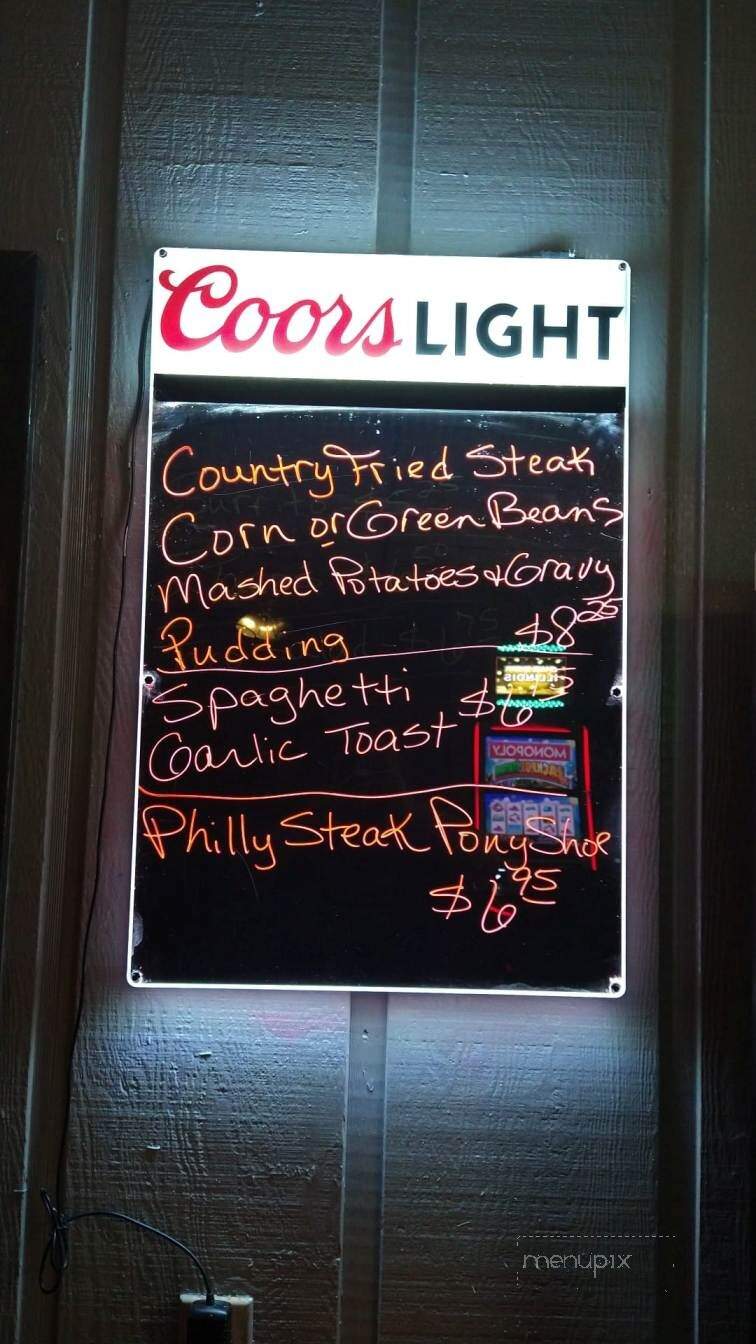 Coors LIGHT
Country Fried Steak
Corn or Green Beans
Mashed Potatoes & Gravy
Pudding $8
Spaghetti $6
Garlic Toast
MONOPOLY
Philly Steak Pony Shoe
$6.95
menupix